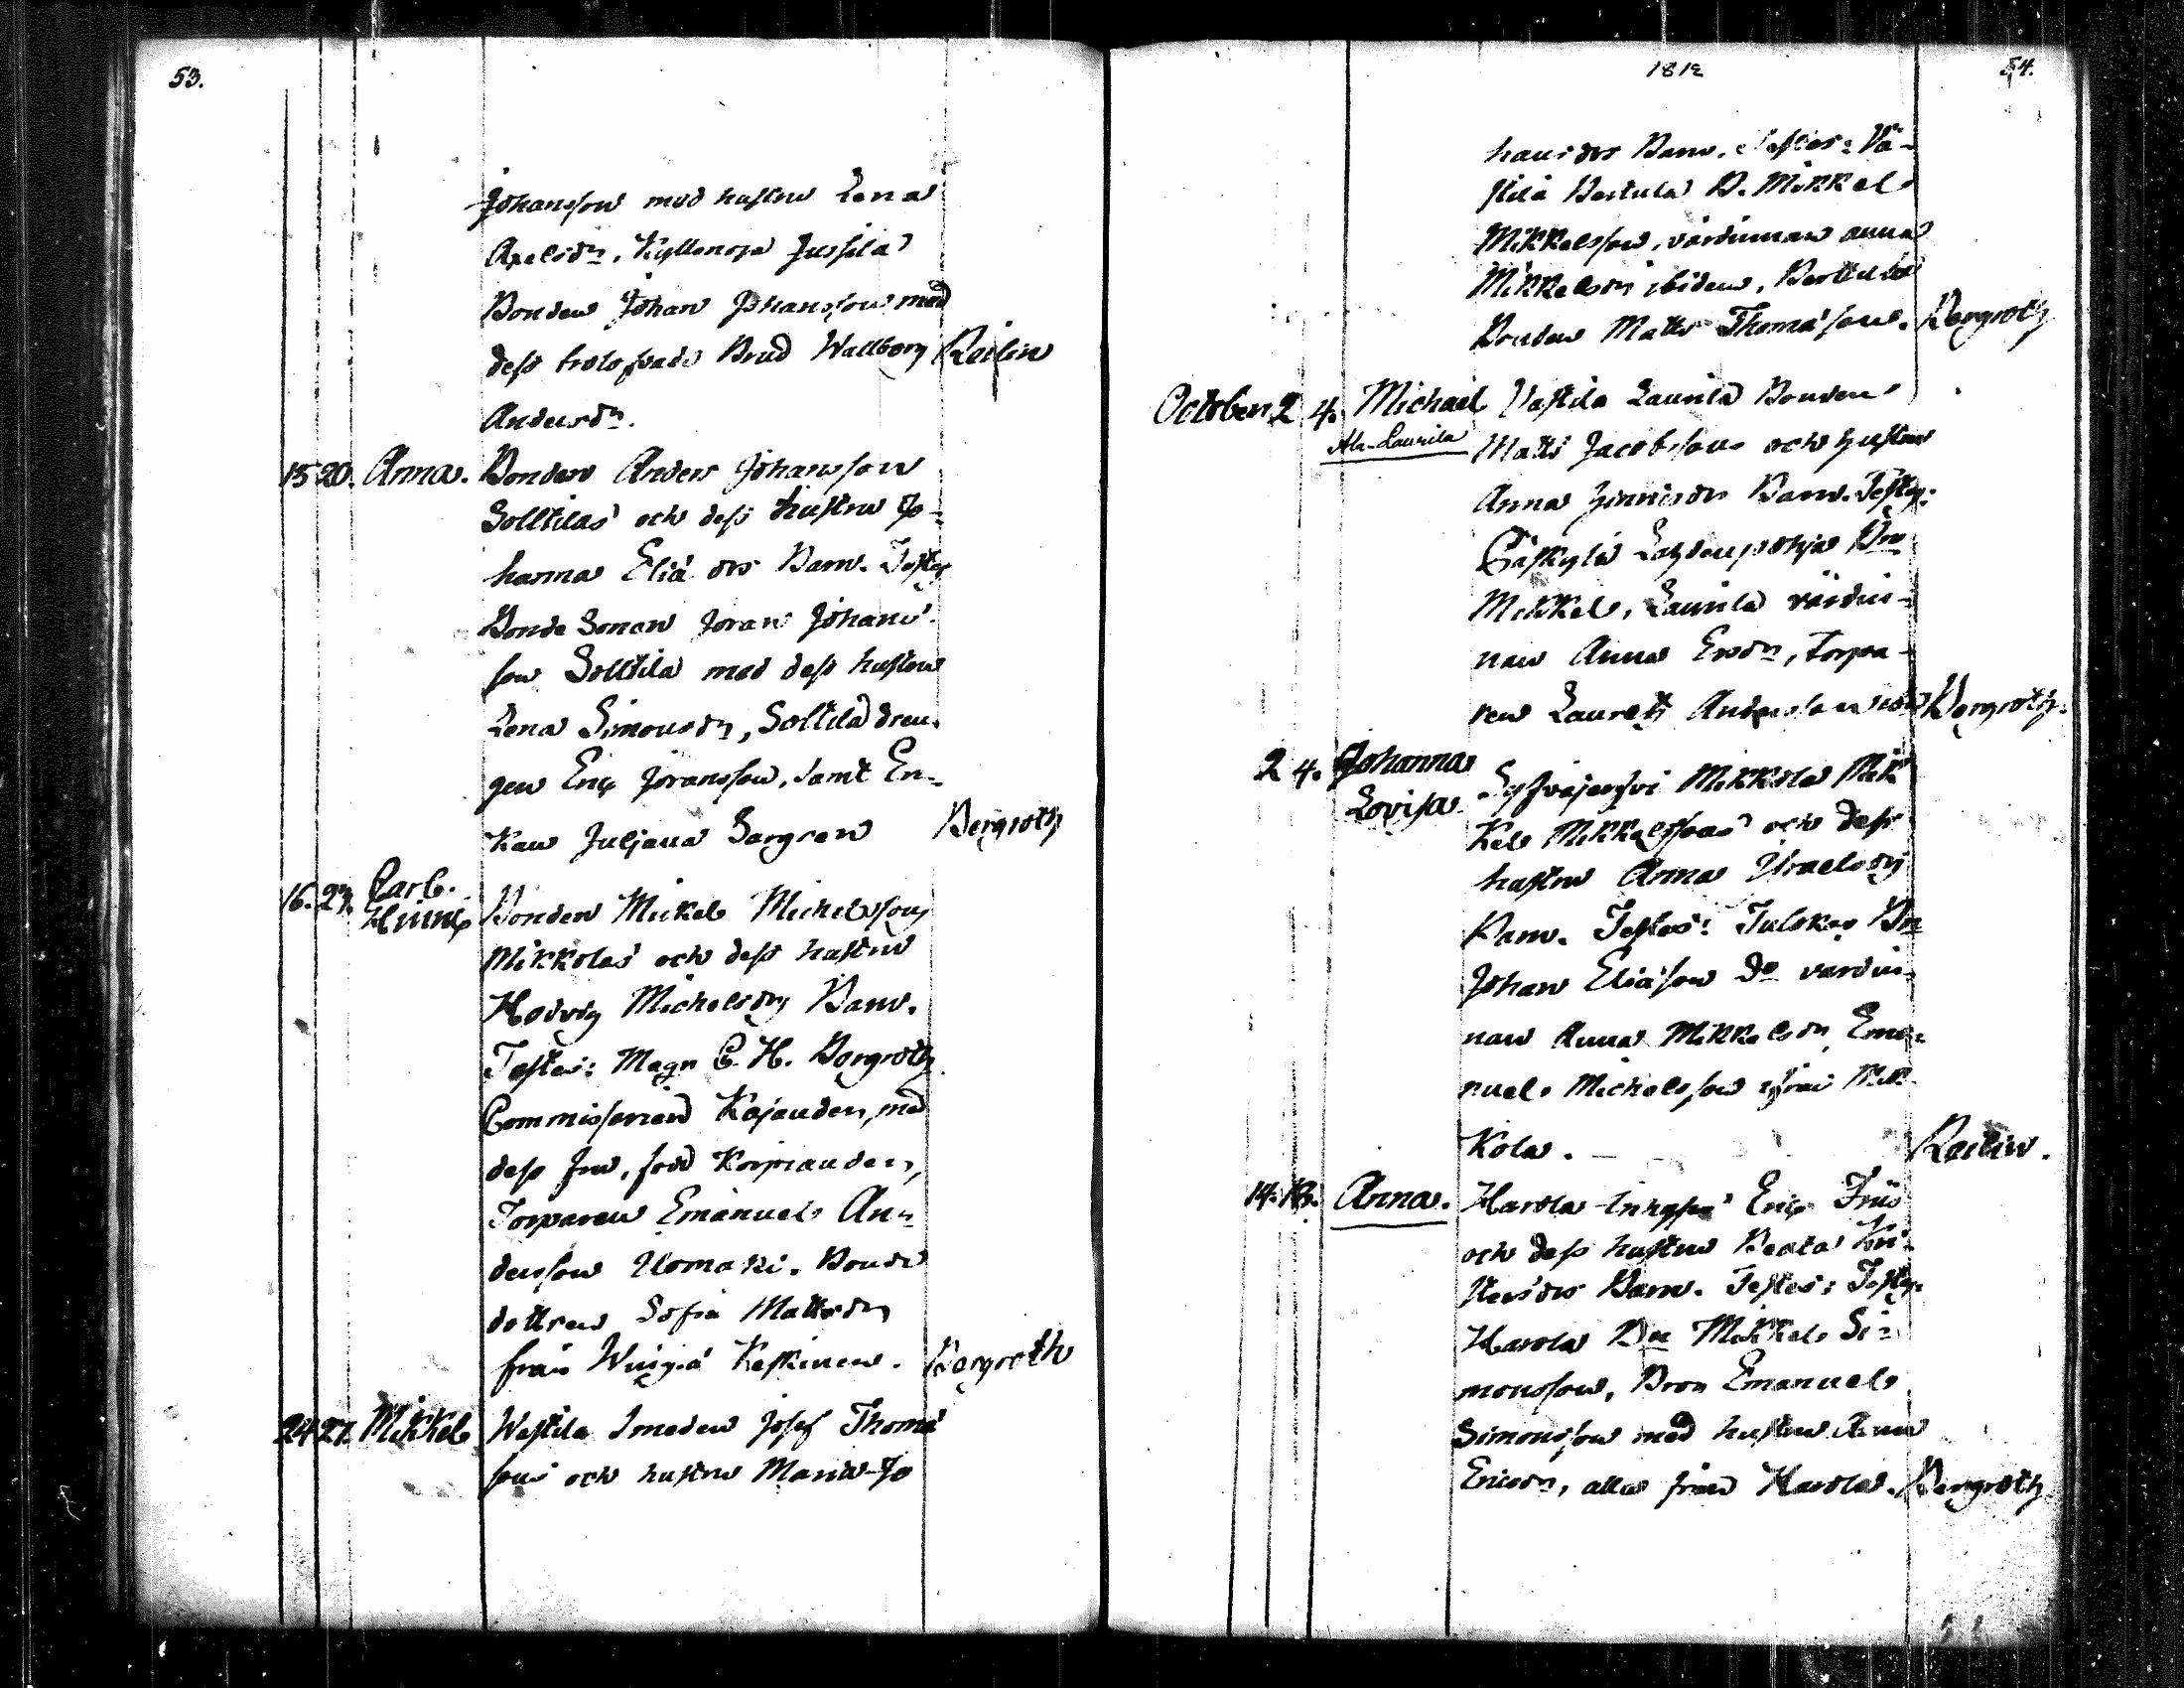 53.
Johansson med hustru Lena
Axelsdr. Kyllenoja Jussila
Bonden Johan Johansson med
dess trolofvade Brud Wallborg Reilin
Andersdr.
15 20. Anna. Bonden Anders Johansson
Solttilas och dess hustru Jo-
hanna Eliä drs Barn. Testes
Bonde Sonen Joran Johans-
son Solttila med dess hustru
Lena Simonsdr, Solttila dren-
gen Eric Joransson, samt En-
kan Juljana Sergren Bergroth
16. 27. Carl Hinric Bonden Mickel Michelsson
Mikkolas och dess hustru
Hedvig Michelsdr Barn.
Testes: Magr C. H. Bergroth
Commissarien Kajander, med
dess fru, född Korpiander,
Torparen Emanuel An-
dersson Ylomäki. Bonde
dottren Sofia Mattsdr
från Keskinen. Bergroth
24 27. Mikkel Westila Smeden Josef Thomä
sons och hustru Maria Jo
1812 54.
hans drs Barn. Testes: Vä-
stila Bertula B. Mikkel
Mikkelsson, värdinnan Anna
Mikkelsdr ibidem, Bertula
Bonden Matts Thomäson. Bergroth
October 2 4. Michael Vestila Laurila Bonden
Ala-Laurila Matts Jacobssons och hustru
Anna Hinricsdrs Barn. Testes:
Säkylä Lähdenpohja Bn
Mikkel, Laurila värdin-
nan Anna Ersdr, torpa-
ren Laurets Andersson Bergroth.
2 4. Johanna Lovisa Mikkola Mik
kel Mikkelssons och dess
hustru Anna Israelsdrs
Barn. Testes: Julskas Bn
Johan Eliäson Do värdin-
nan Anna Mikkelsdr, Ema-
nuel Michelsson ifrån Mik-
kola. Reilin.
14. 18. Anna. Harola Inhyses Eric Friis
och dess hustru Beata Kri-
stersdrs Barn. Testes: Testes
Harola Bn Mikkel Si-
monsson, Bron Emanuel
Simonsson med hustru Anna
Ericsdr, alla från Harola. Bergroth